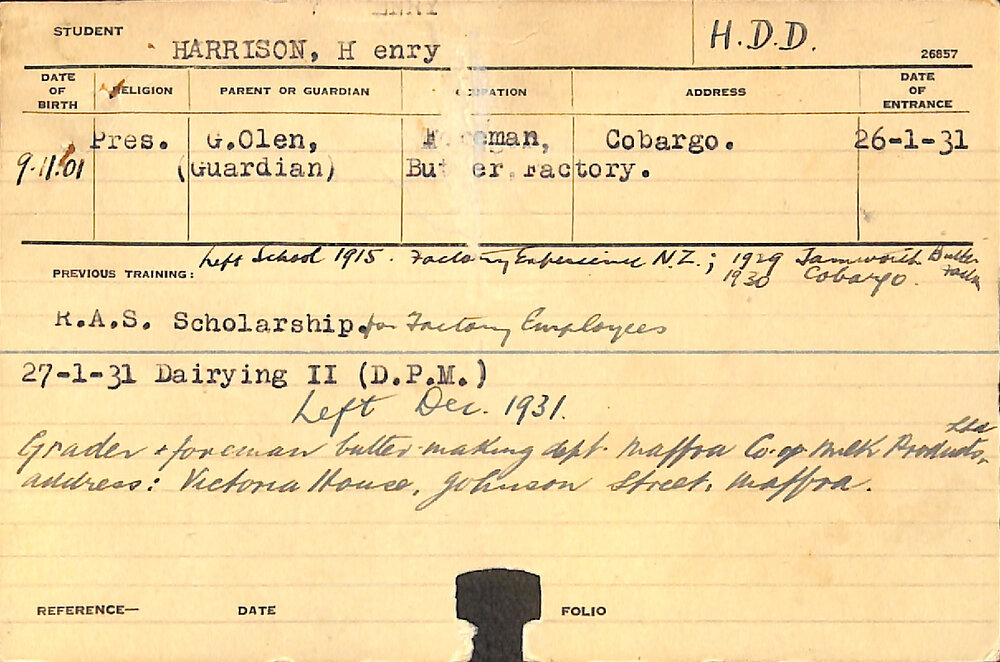 STUDENT
HARRISON, H enry
H.D.D.
26857
DATE OF BIRTH
RELIGION
PARENT OR GUARDIAN
OCCUPATION
ADDRESS
DATE OF ENTRANCE
9.11.01
Pres.
G.Olen,
Foreman,
Cobargo.
26-1-31
(Guardian)
Butter Factory.
PREVIOUS TRAINING:
Left School 1915. Factory Experience N.Z.; 1929 Tamworth Butter
1930 Cobargo.
R.A.S. Scholarship. for Factory Employees
27-1-31 Dairying II (D.P.M.)
Left Dec. 1931.
Grader + foreman butter-making dept. Maffra Co-op Milk Products, Ltd
address: Victoria House, Johnson Street, Maffra.
REFERENCE—
DATE
FOLIO